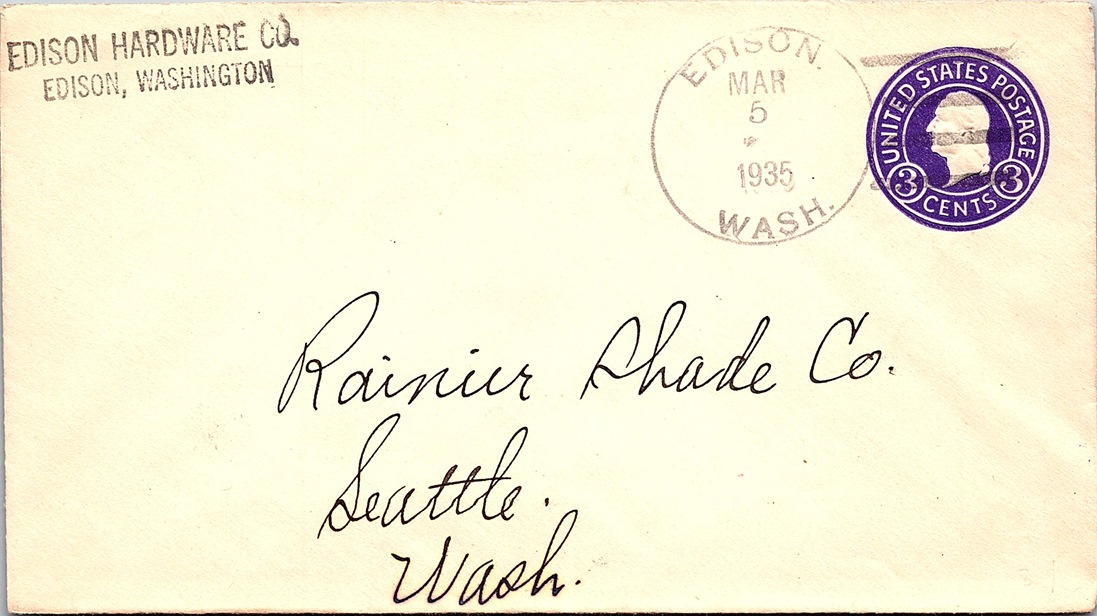 EDISON HARDWARE CO.
EDISON, WASHINGTON
EDISON.
MAR
5
1935
WASH.
UNITED STATES POSTAGE
3 CENTS 3
Rainier Shade Co.
Seattle.
Wash.